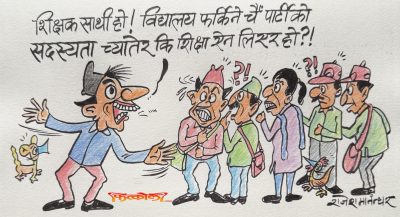 शिक्षक साथी हो! विद्यालय फर्किने चैँ पार्टीको
सदस्यता च्यातेर कि शिक्षा ऐन लिएर हो?!
?!
?!
राजेश मानन्धर